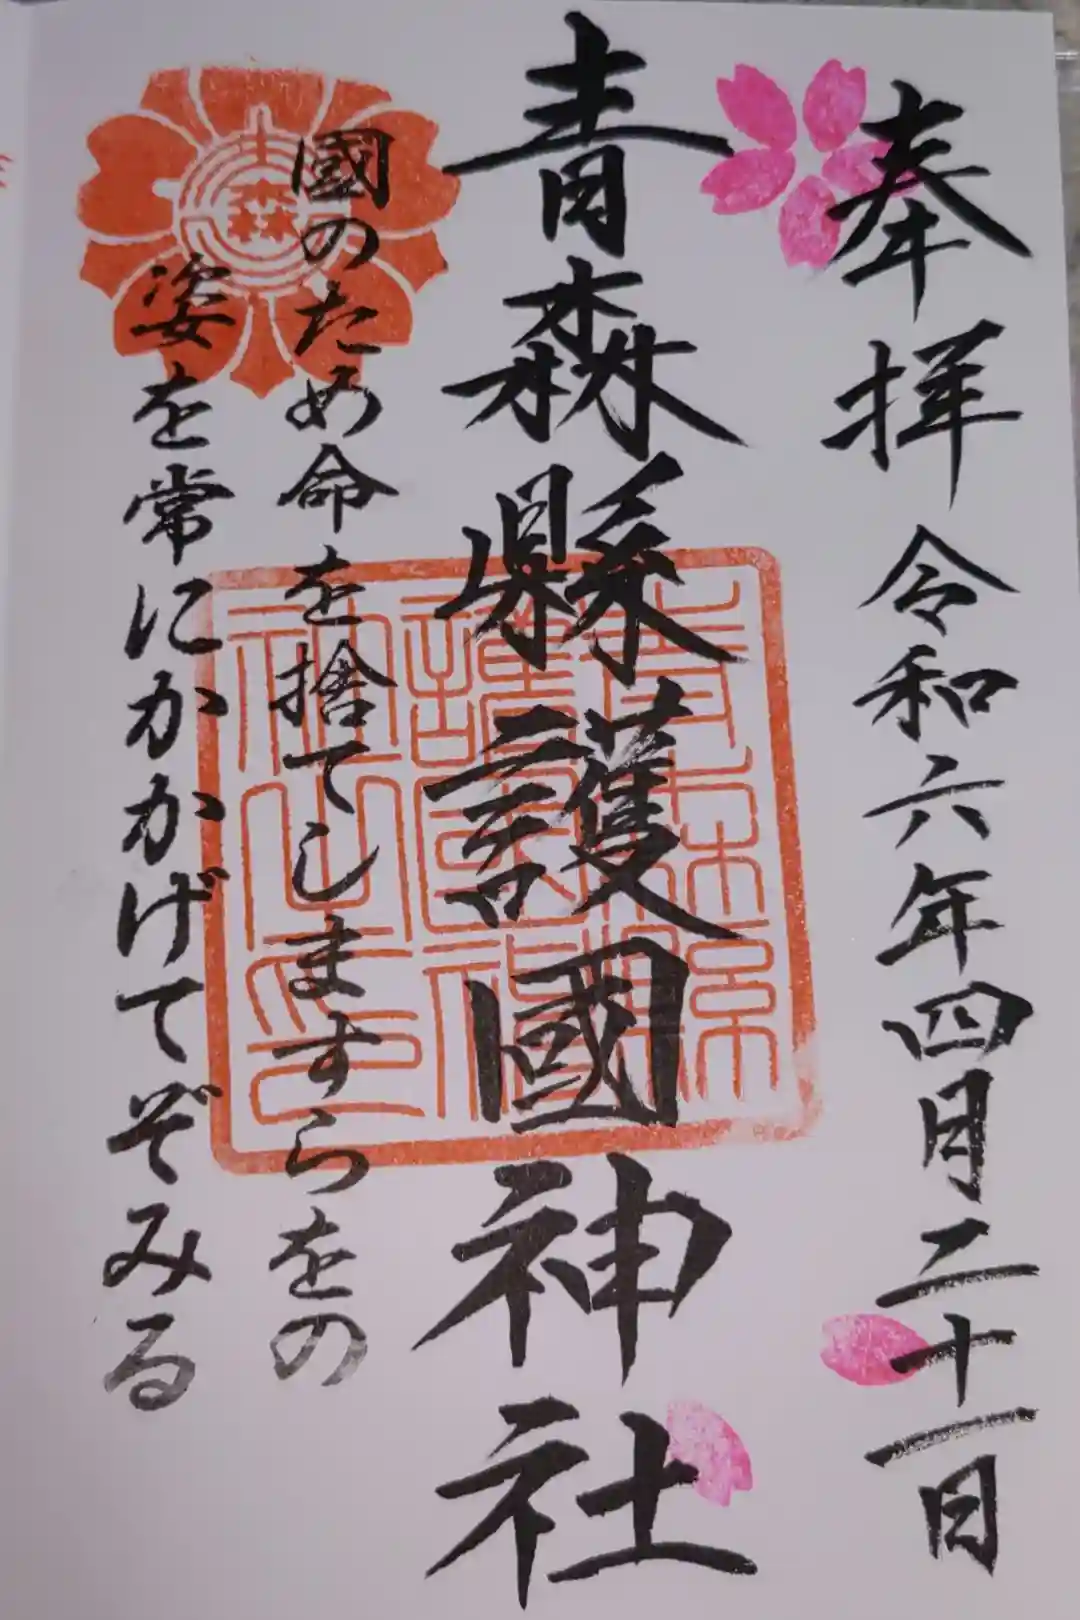 奉拝 令和六年四月二十一日
青森縣護國神社
國のため命を捨てしますらをの
姿を常にかかげてぞみる
森